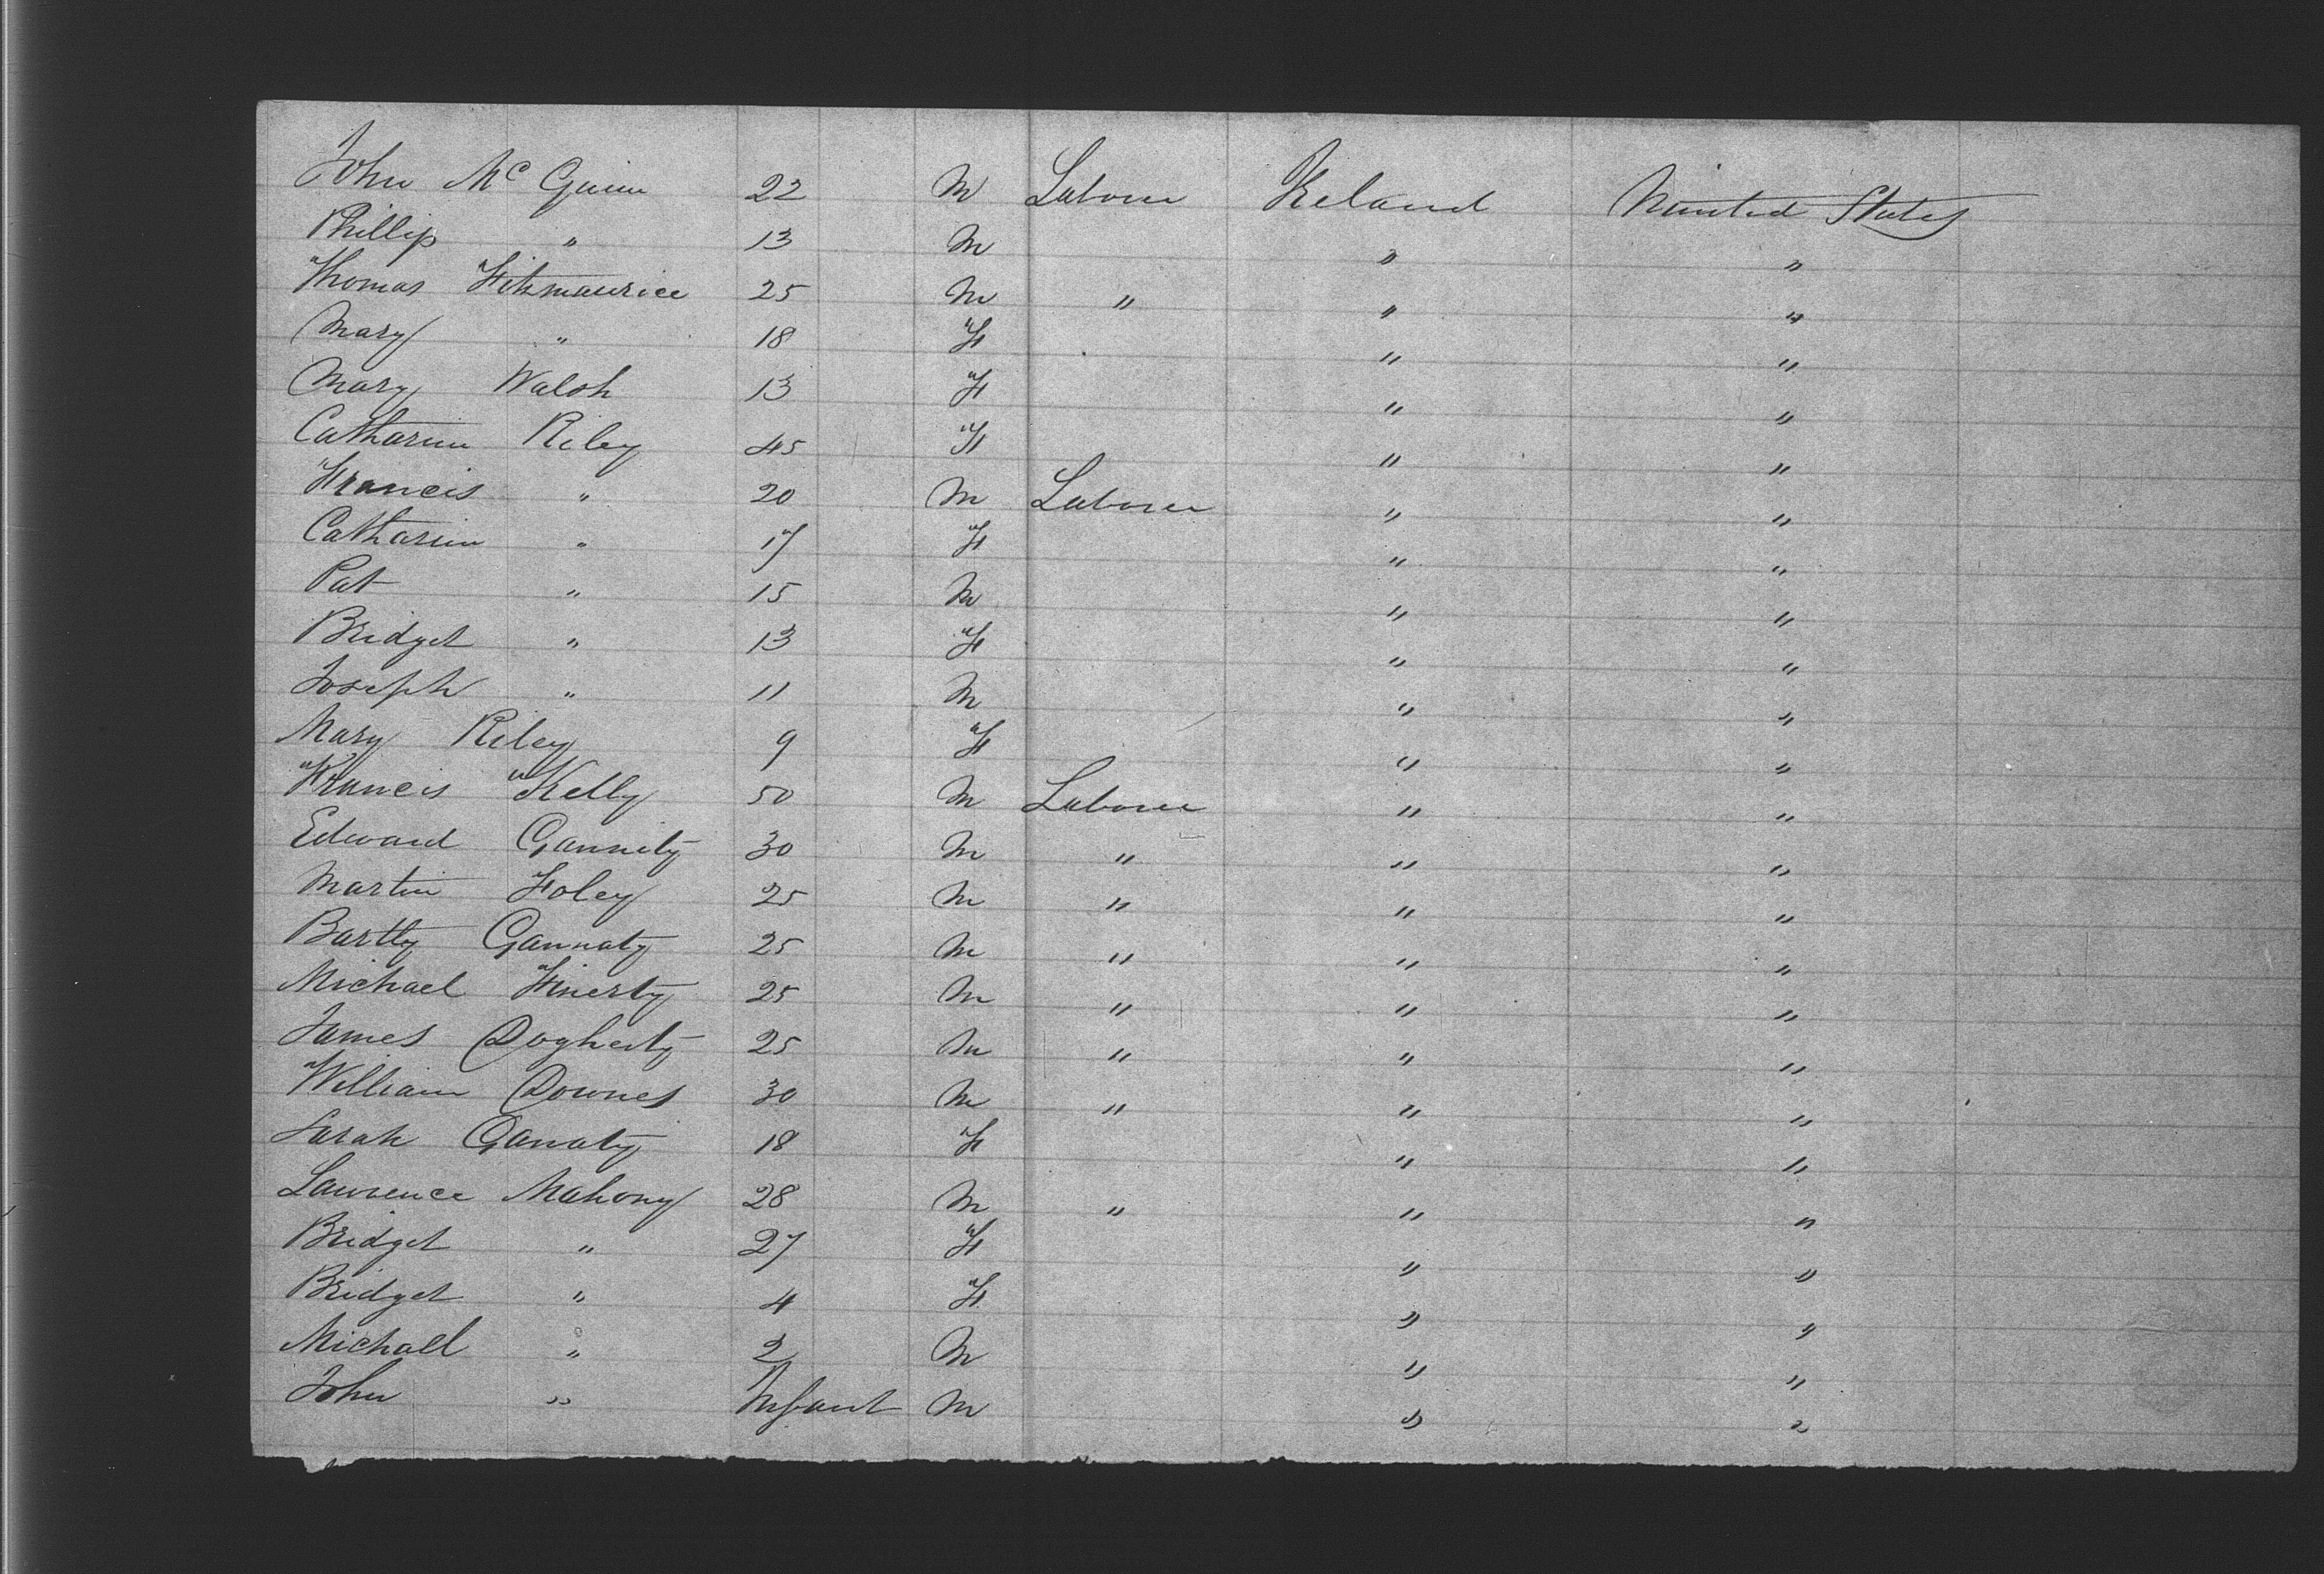 John Mc Guinn 22 M Laborer Ireland United States
Phillip " 13 M " "
Thomas Fitzmaurice 25 M " " "
Mary " 18 F " "
Mary Walsh 13 F " "
Catharine Riley 45 F " "
Francis " 20 M Laborer " "
Catharine " 17 F " "
Pat " 15 M " "
Bridget " 13 F " "
Joseph " 11 M " "
Mary Riley 9 F " "
Francis Kelly 50 M Laborer " "
Edward Gannity 30 M " " "
Martin Foley 25 M " " "
Bartly Gannaty 25 M " " "
Michael Finerty 25 M " " "
James Dogherty 25 M " " "
William Downes 30 M " " "
Sarah Ganaty 18 F " "
Lawrence Mahony 28 M " " "
Bridget " 27 F " "
Bridget " 4 F " "
Michael " 2 M " "
John " Infant M " "